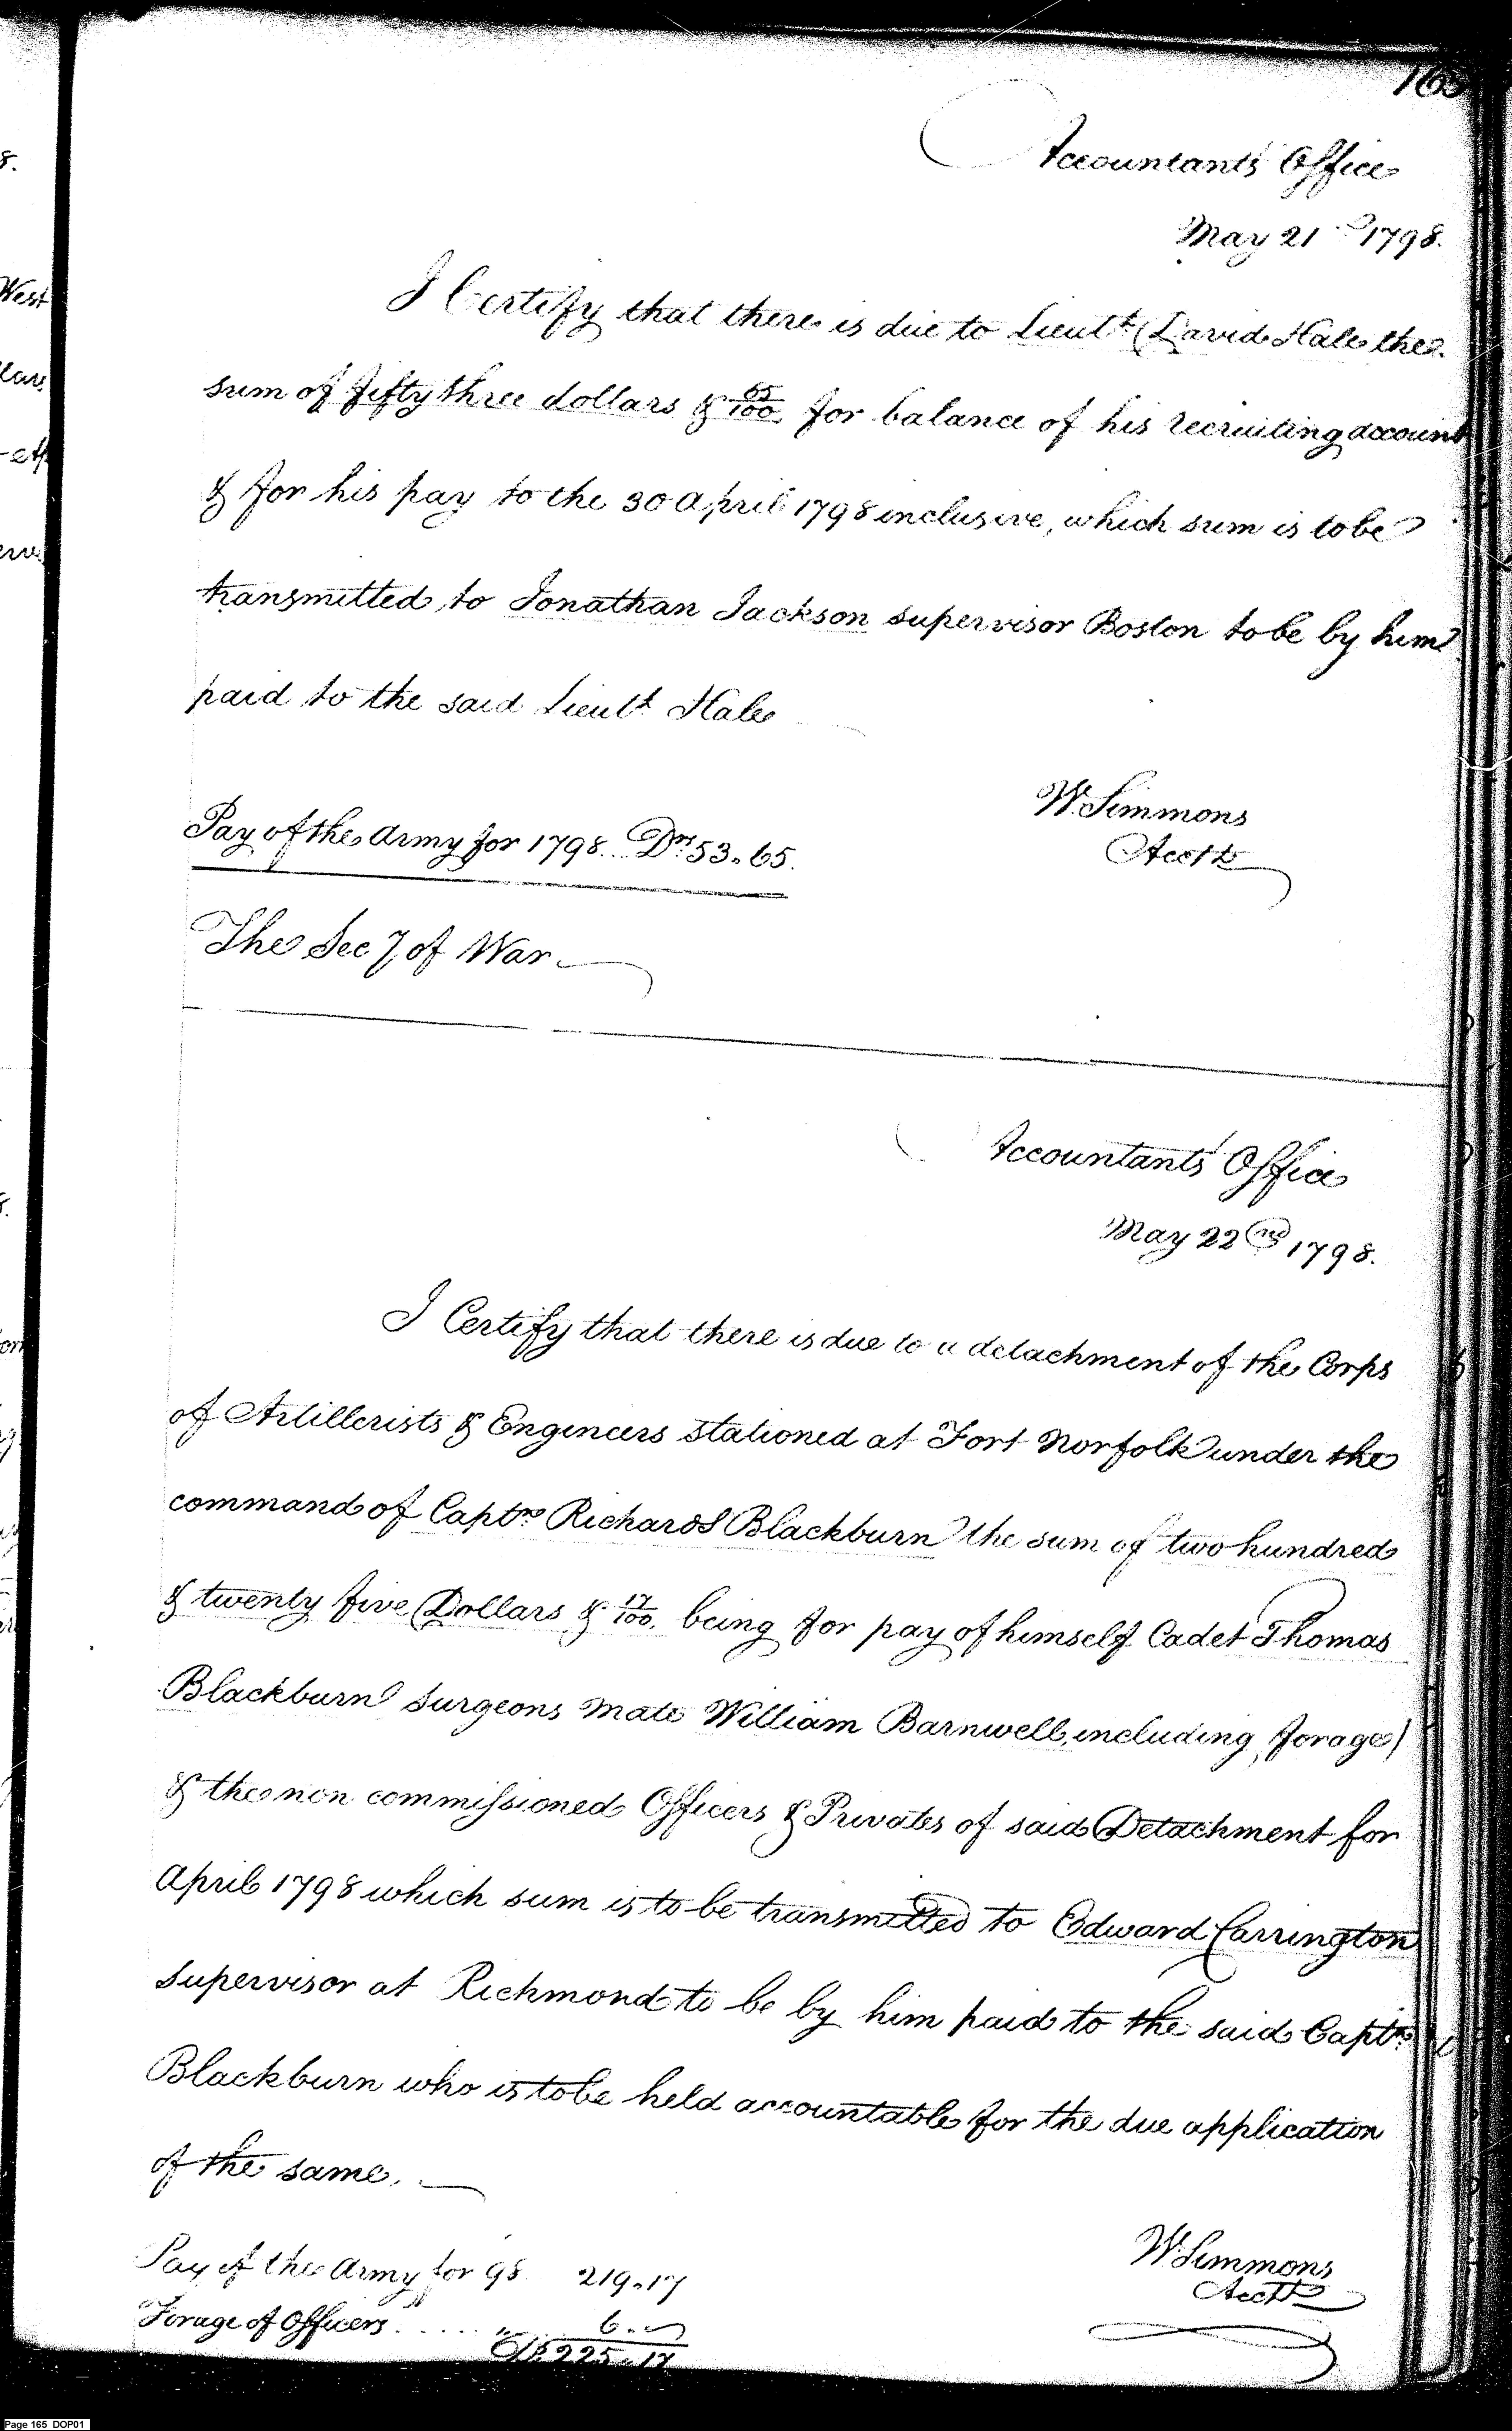 165
Accountants Office
May 21st 1798.
I Certify that there is due to Lieutt David Hale the
sum of fifty three dollars & 65/100 for balance of his recruiting account
& for his pay to the 30 April 1798 inclusive, which sum is to be
transmitted to Jonathan Jackson supervisor Boston to be by him
paid to the said Lieutt Hale
W. Simmons
Acctt
Pay of the Army for 1798... Drs 53.65.
The Secy of War
Accountants' Office
May 22nd 1798.
I Certify that there is due to a detachment of the Corps
of Artillerists & Engineers stationed at Fort Norfolk under the
command of Captn Richard S Blackburn the sum of two hundred
& twenty five Dollars & 17/100. being for pay of himself Cadet Thomas
Blackburn Surgeons Mate William Barnwell, including forage)
& the non commissioned Officers & Privates of said Detachment for
April 1798 which sum is to be transmitted to Edward Carrington
Supervisor at Richmond to be by him paid to the said Captn
Blackburn who is to be held accountable for the due application
of the same.
W. Simmons
Acctt
Pay of the Army for 98 219.17
Forage of Officers..... " 6."
Drs 225.17
Page 165 DOP01